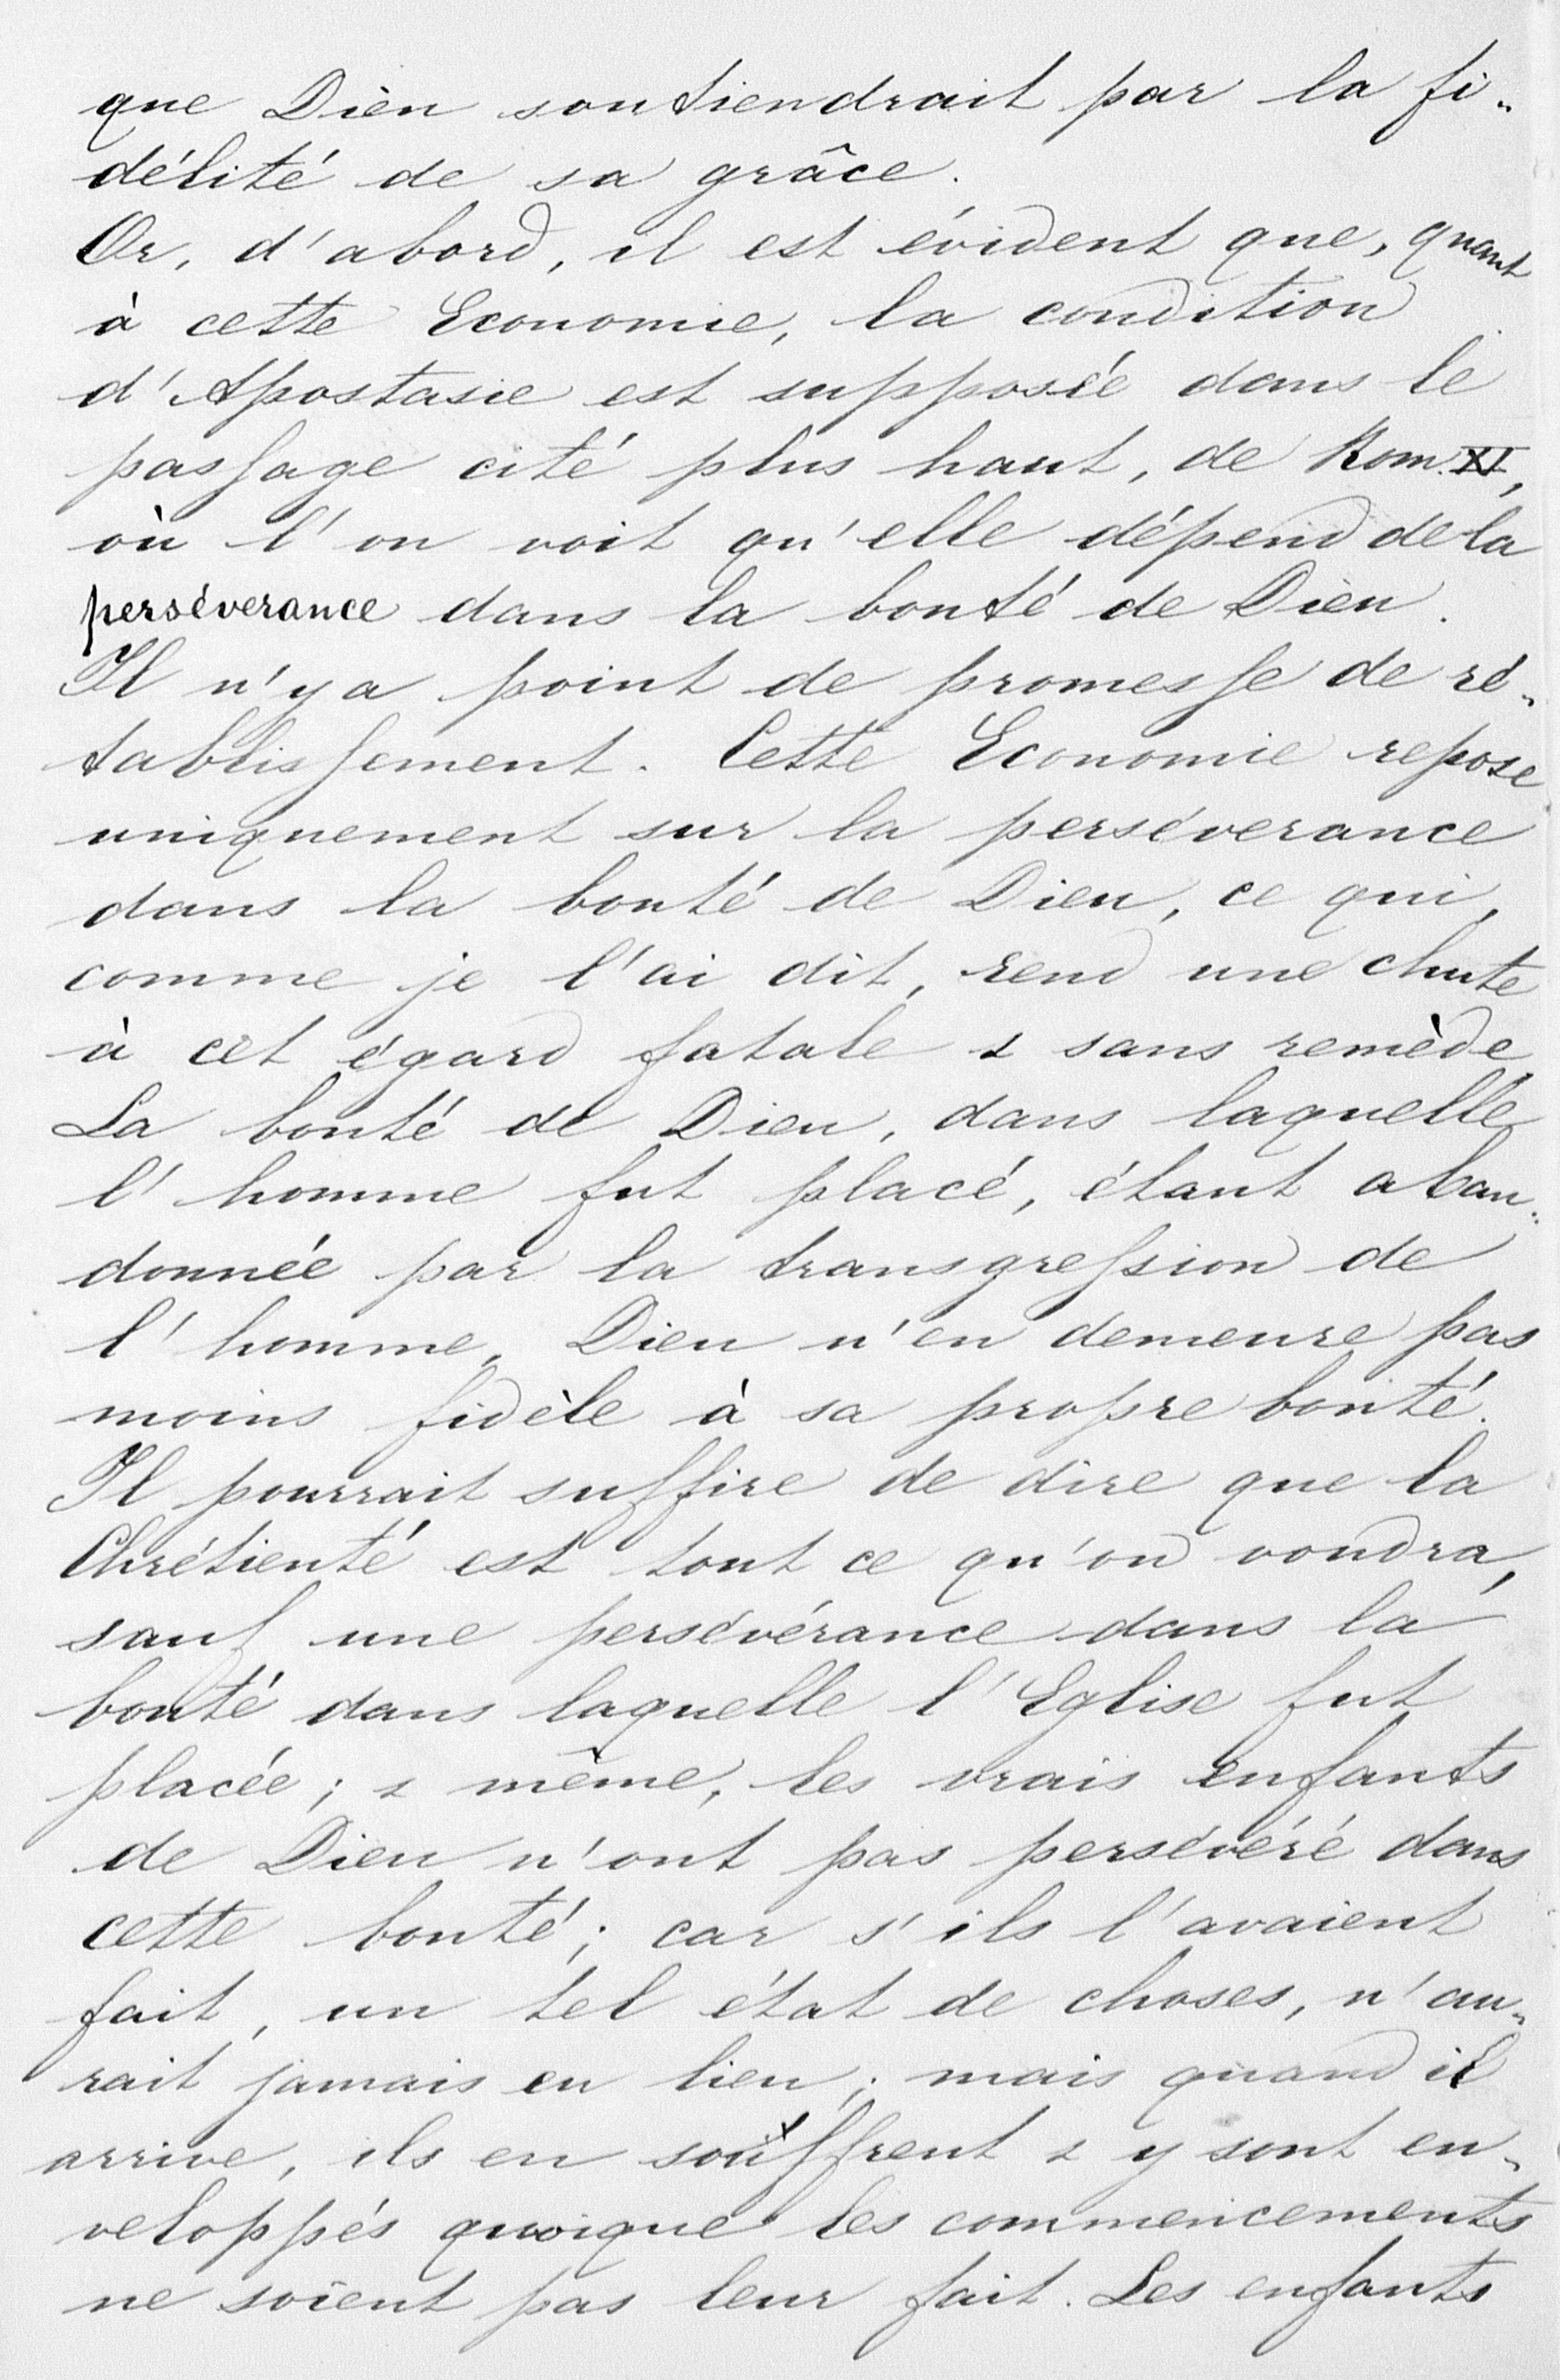 que Dieu soutiendrait par la fi-
délité de sa grâce.
Or, d'abord, il est évident que, quant
à cette Economie, la condition
d'Apostasie est supposée dans le
passage cité plus haut, de Rom. XI,
où l'on voit qu'elle dépend de la
persévérance dans la bonté de Dieu.
Il n'y a point de promesse de ré-
tablissement. Cette Economie repose
uniquement sur la persévérance
dans la bonté de Dieu, ce qui,
comme je l'ai dit, rend une chute
à cet égard fatale & sans remède.
La bonté de Dieu, dans laquelle
l'homme fut placé, étant aban-
donnée par la transgression de
l'homme, Dieu n'en demeure pas
moins fidèle à sa propre bonté.
Il pourrait suffire de dire que la
Chrétienté est tout ce qu'on voudra,
sauf une persévérance dans la
bonté dans laquelle l'Eglise fut
placée ; & même, les vrais enfants
de Dieu n'ont pas persévéré dans
cette bonté ; car s'ils l'avaient
fait, un tel état de choses, n'au-
rait jamais eu lieu ; mais quand il
arrive, ils en souffrent & y sont en-
veloppés quoique les commencements
ne soient pas leur fait. Les enfants